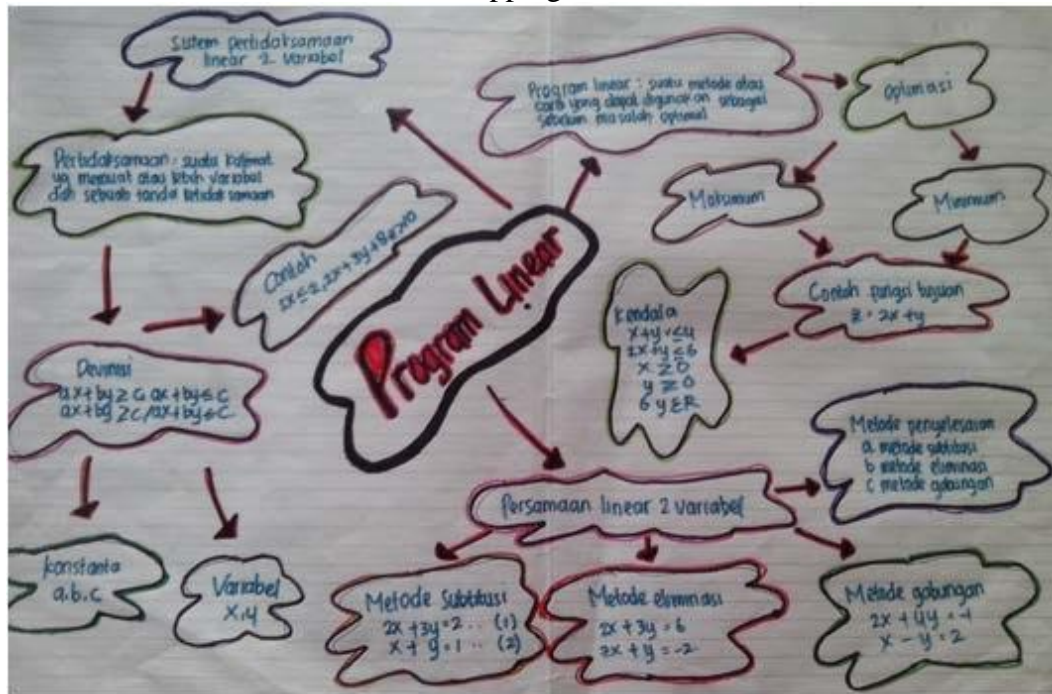 pping
Sistem pertidaksamaan
linear 2 variabel
Pertidaksamaan : suatu kalimat
yg memuat atau lebih variabel
dah sebuah tanda ketidaksamaan
Contoh
2x+3y+8
Devinisi
ax+by≥c ax+by≤c
ax+by≥c/ax+by≤c
Konstanta
a,b,c
Variabel
x,y
Program Linear
Program linear : suatu metode atau
cara yang dapat digunakan sebagai
sebelum masalah optimal
Optimasi
Maksimum
Minimum
Contoh fungsi tujuan
z = 2x+y
Kendala
x+y ≤4
2x+y ≤6
x ≥0
y ≥0
Persamaan linear 2 variabel
Metode penyelesaian
a metode subtitusi
b metode eliminasi
c metode gabungan
Metode Subtitusi
2x +3y =2 .. (1)
x + y =1 .. (2)
Metode eliminasi
2x + 3y =6
2x + y =-2
Metode gabungan
2x +4y =-1
x - y = 2